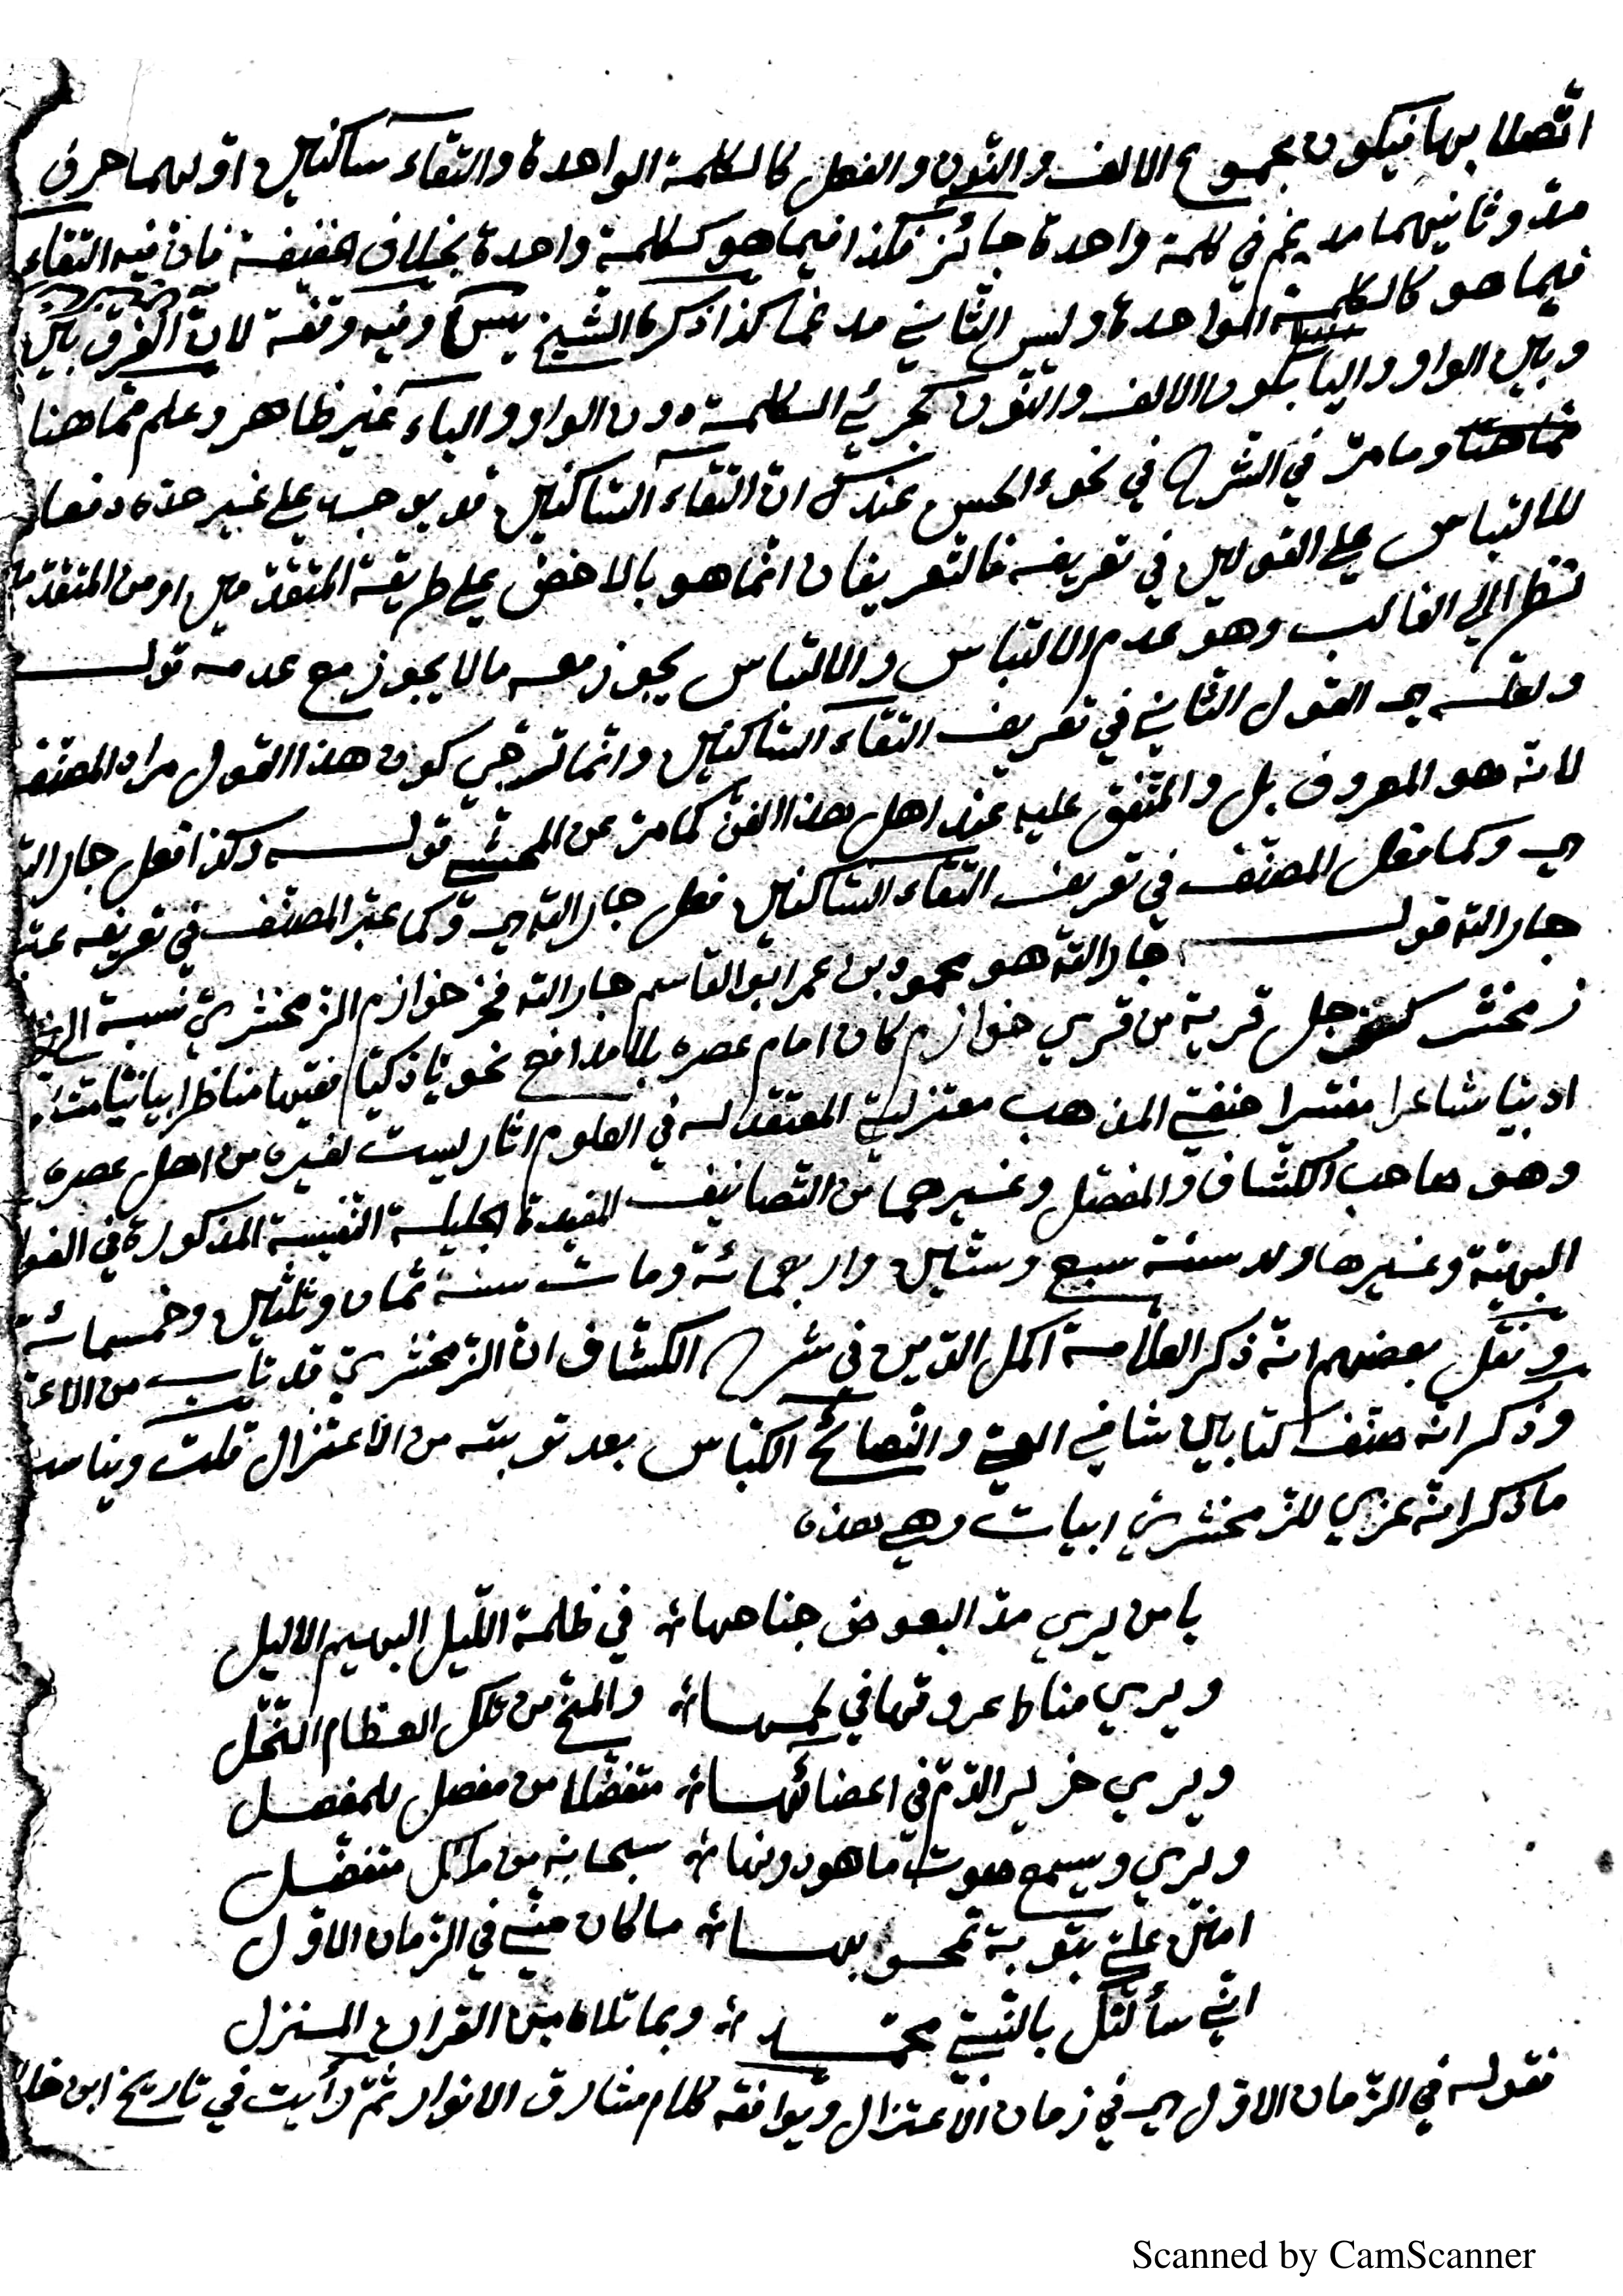 اتّصلا بها فيكون مجموع الالف والنّون والفعل كالكلمة الواحدة والتقاء ساكنين اوّلهما حرف
مدّ وثانيهما مدغم في كلمة واحدة جائز فكذا فيما هو ككلمة واحدة بخلاف الخفيفة فانّ فيه التقاء
فيما هو كالكلمة الواحدة وليس الثّاني مدغما كذا ذكره الشّيخ يس وفيه وقفة لانّ الفرق بين
وبين الواو واليا بكون الالف والنّون كجزئي الكلمة دون الواو والياء غير ظاهر وعلم ممّا هنا
ممّا هنا وما مرّ في الشّرح في نحو ءالحسن عندك انّ التقاء السّاكنين قد يوجب على غير حدّه دفعا
للالتباس على القولين في تعريفه فالتعريفان انّما هو بالاخصّ على طريقة المتقدّمين او من المتقدّمين
نظرا الى الغالب وهو عدم الالتباس والالتباس يجوز معه ما لا يجوز مع عدمه قولـــه
ولعلّه اي القول الثّاني في تعريف التقاء السّاكنين وانّما ترجّي كون هذا القول مراد المصنّف
لانّه هو المعروف بل والمتّفق عليه عند اهل هذا الفنّ كما مرّ عن المحشّي قولـــه وكذا فعل جار اللّه
اي وكما فعل المصنّف في تعريف التقاء السّاكنين فعل جار اللّه اي وكما عبّر المصنّف في تعريفه عبّر
جار اللّه قولـــه جار اللّه هو محمود بن عمر ابو القاسم جار اللّه فخر خوازم الزّمخشريّ نسبة الى
زمخشر كسفرجل قرية من قري خوازم كان امام عصره بلا مدافع نحويّا ذكيّا فقيها مناظرا بيانيّا
اديبا شاعرا مفسّرا حنفيّ المذهب معتزليّ المعتقد له في العلوم اثار ليست لغيره من اهل عصره
وهو صاحب الكشّاف والمفصّل وغيرهما من التّصانيف المفيدة الجليلة النّفيسة المذكورة في الفوا
البهيّة وغيرها ولد سنة سبع وستّين واربعمائة ومات سنة ثمان وثلثين وخمسمائة
ونقل بعضهم انّه ذكر العلّامة اكمل الدّين في شرح الكشّاف انّ الزّمخشريّ قد تاب من الاعـ
وذكر انّه صنّف كتابين شافي العيّ والنّصائح الكبار بعد توبته من الاعتزال قلت ويناسب
ما ذكر انّه عزي للزّمخشريّ ابيات وهي هذه
يا من يري مدّ البعوض جناحها في ظلمة اللّيل البهيم الاليل
ويري مناط عروقها في لحمها والمخّ من تلك العظام النّحّل
ويري خرير الدّم في اعضائها متفصّلا من مفصل للمفصل
ويري ويسمع صوت ما هو دونها سبحانه من مالك متفضّل
امنن عليّ بتوبة تمحو بها ما كان منّي في الزّمان الاوّل
انّي سألتك بالنّبيّ محمّد وبما تلاه من القران المنزل
فقوله في الزّمان الاوّل اي في زمان الاعتزال ويوافقه كلام مشارق الانوار ثمّ رأيت في تاريخ ابن خلـ
Scanned by CamScanner